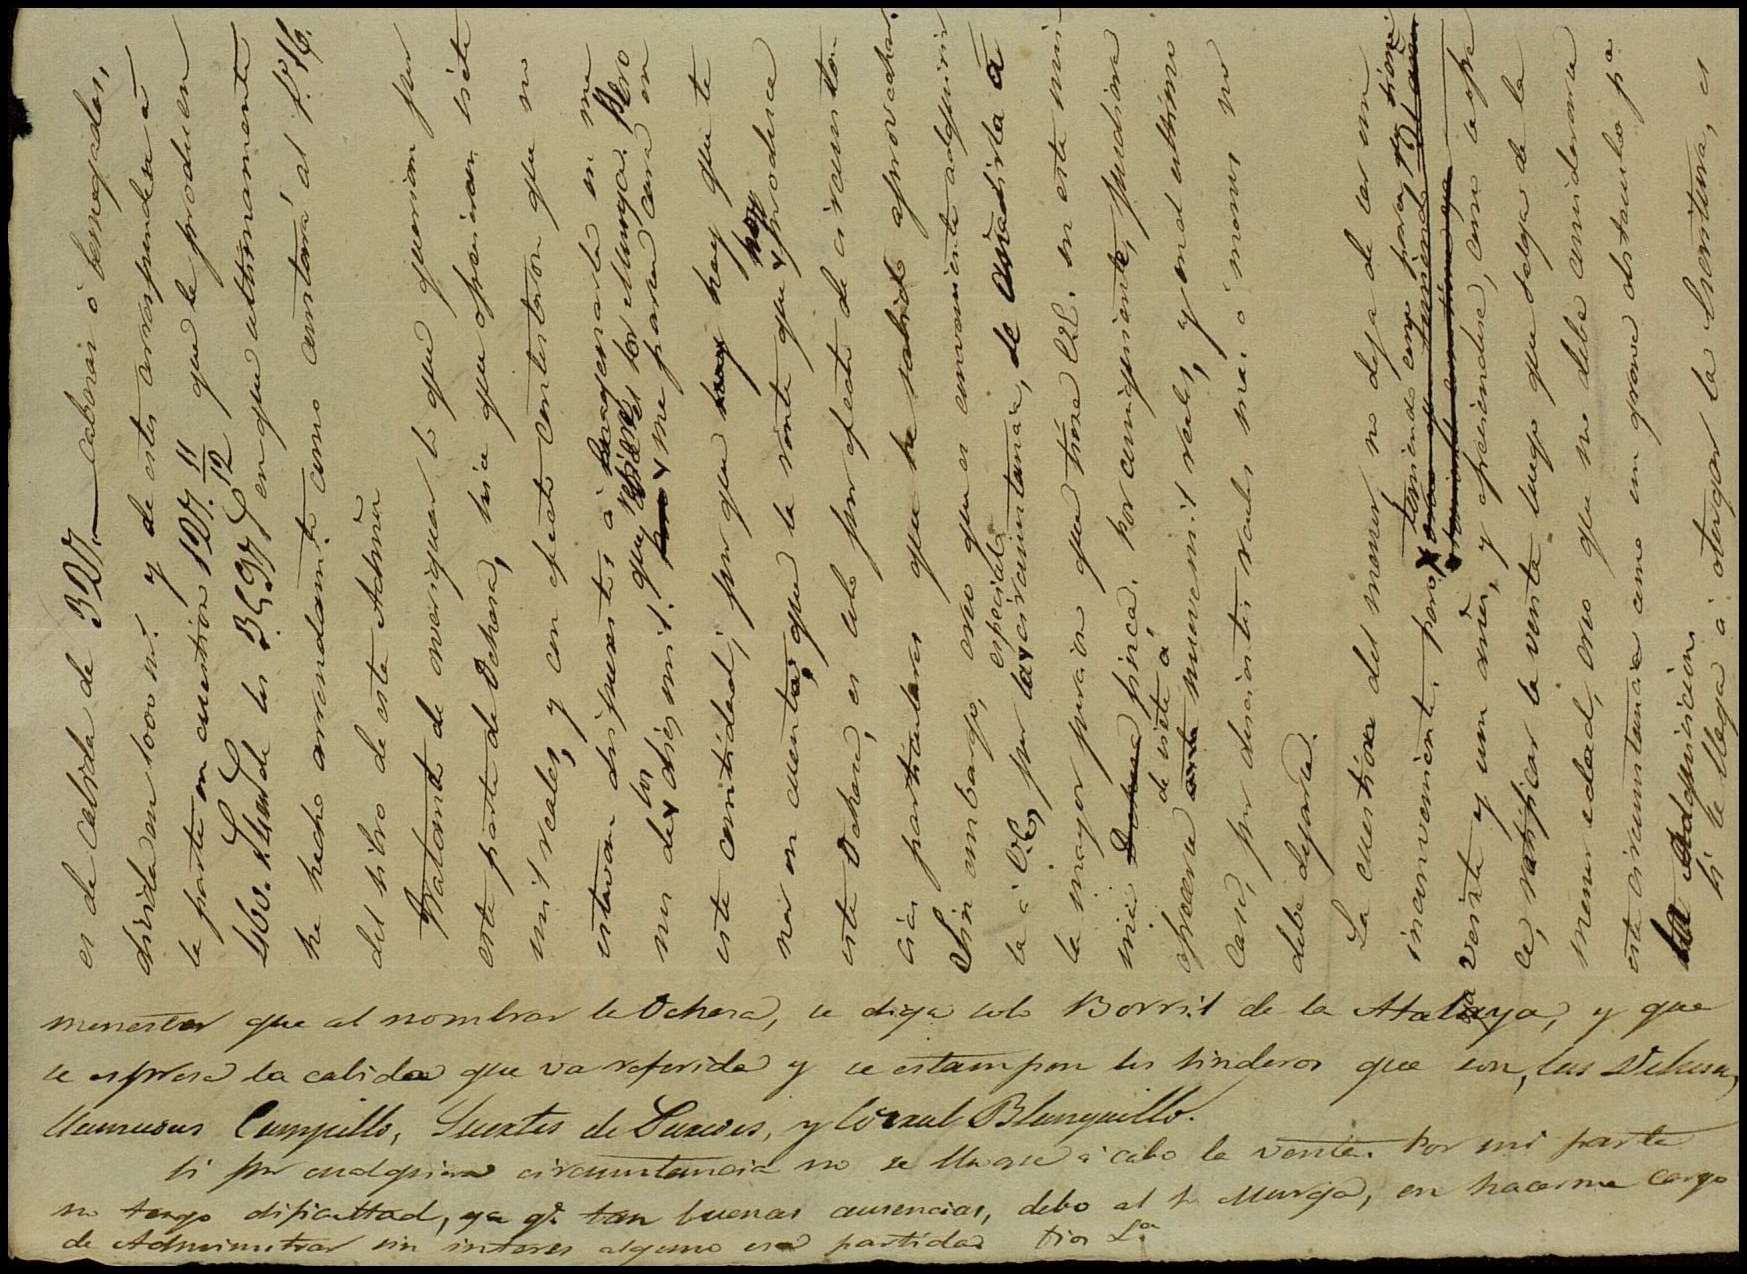 es de Cabida de 327. cabezas ó borregadas,
dividida en 1000 m.s y de estos corresponden á
la parte en cuestion 127. 11/12 que le producen
460. r.s de los 3.597 en que ultimamente
he hecho arrendam.to como constará al f.o 16.
del libro de este Admõr
Tratante de averiguar lo que querian por
esta parte de Dehesa, hice que ofrecieran siete
mil reales, y con efecto contestaron que no
estavan dispuestos á enagenarla en me
nos de los diez mil. que es por Murga. Pero
me parece cara en
esta cantidad; por que hoy hay que te
ner en cuenta, que la renta que hoy produce
esta Dehesa, es solo por efecto de circunstan
cias particulares que he sabido aprovechar.
Sin embargo, creo que es conveniente adquirir
la á VE, por la especial circunstancia, de
la mayor porcion que tiene VE. en esta mis
ma finca. Por consiguiente, pudiera
ofrecerse de siete á nueve mil reales, y en el ultimo
caso, por doscientos reales mas ó menos no
debe dejarse.
La cuestion del menor no deja de ser un
inconveniente. pero, teniendo como pasa
veinte y un años, y ofreciendose, como lo ofre
ce, ratificar la venta luego que salga de la
menor edad, creo que no debe considerarse
esta circunstancia como un grave obstaculo p.a
la adquisicion
Si se llega á otorgar la Escritura, es
menester que al nombrar la Dehesa, se diga solo Borril de la Atalaya, y que
se esprese la cabida que va referida y se estampen los linderos que son, las Dehesas,
llamadas Campillo, Suertes de y Corral Blanquillo.
Si por cualquiera circunstancia no se llevase á cabo la venta. Por mi parte
no tengo dificultad, ya q.e tan buenas ausencias, debo al S. Murga, en hacerme cargo
de Administrar sin interes alguno esa partida